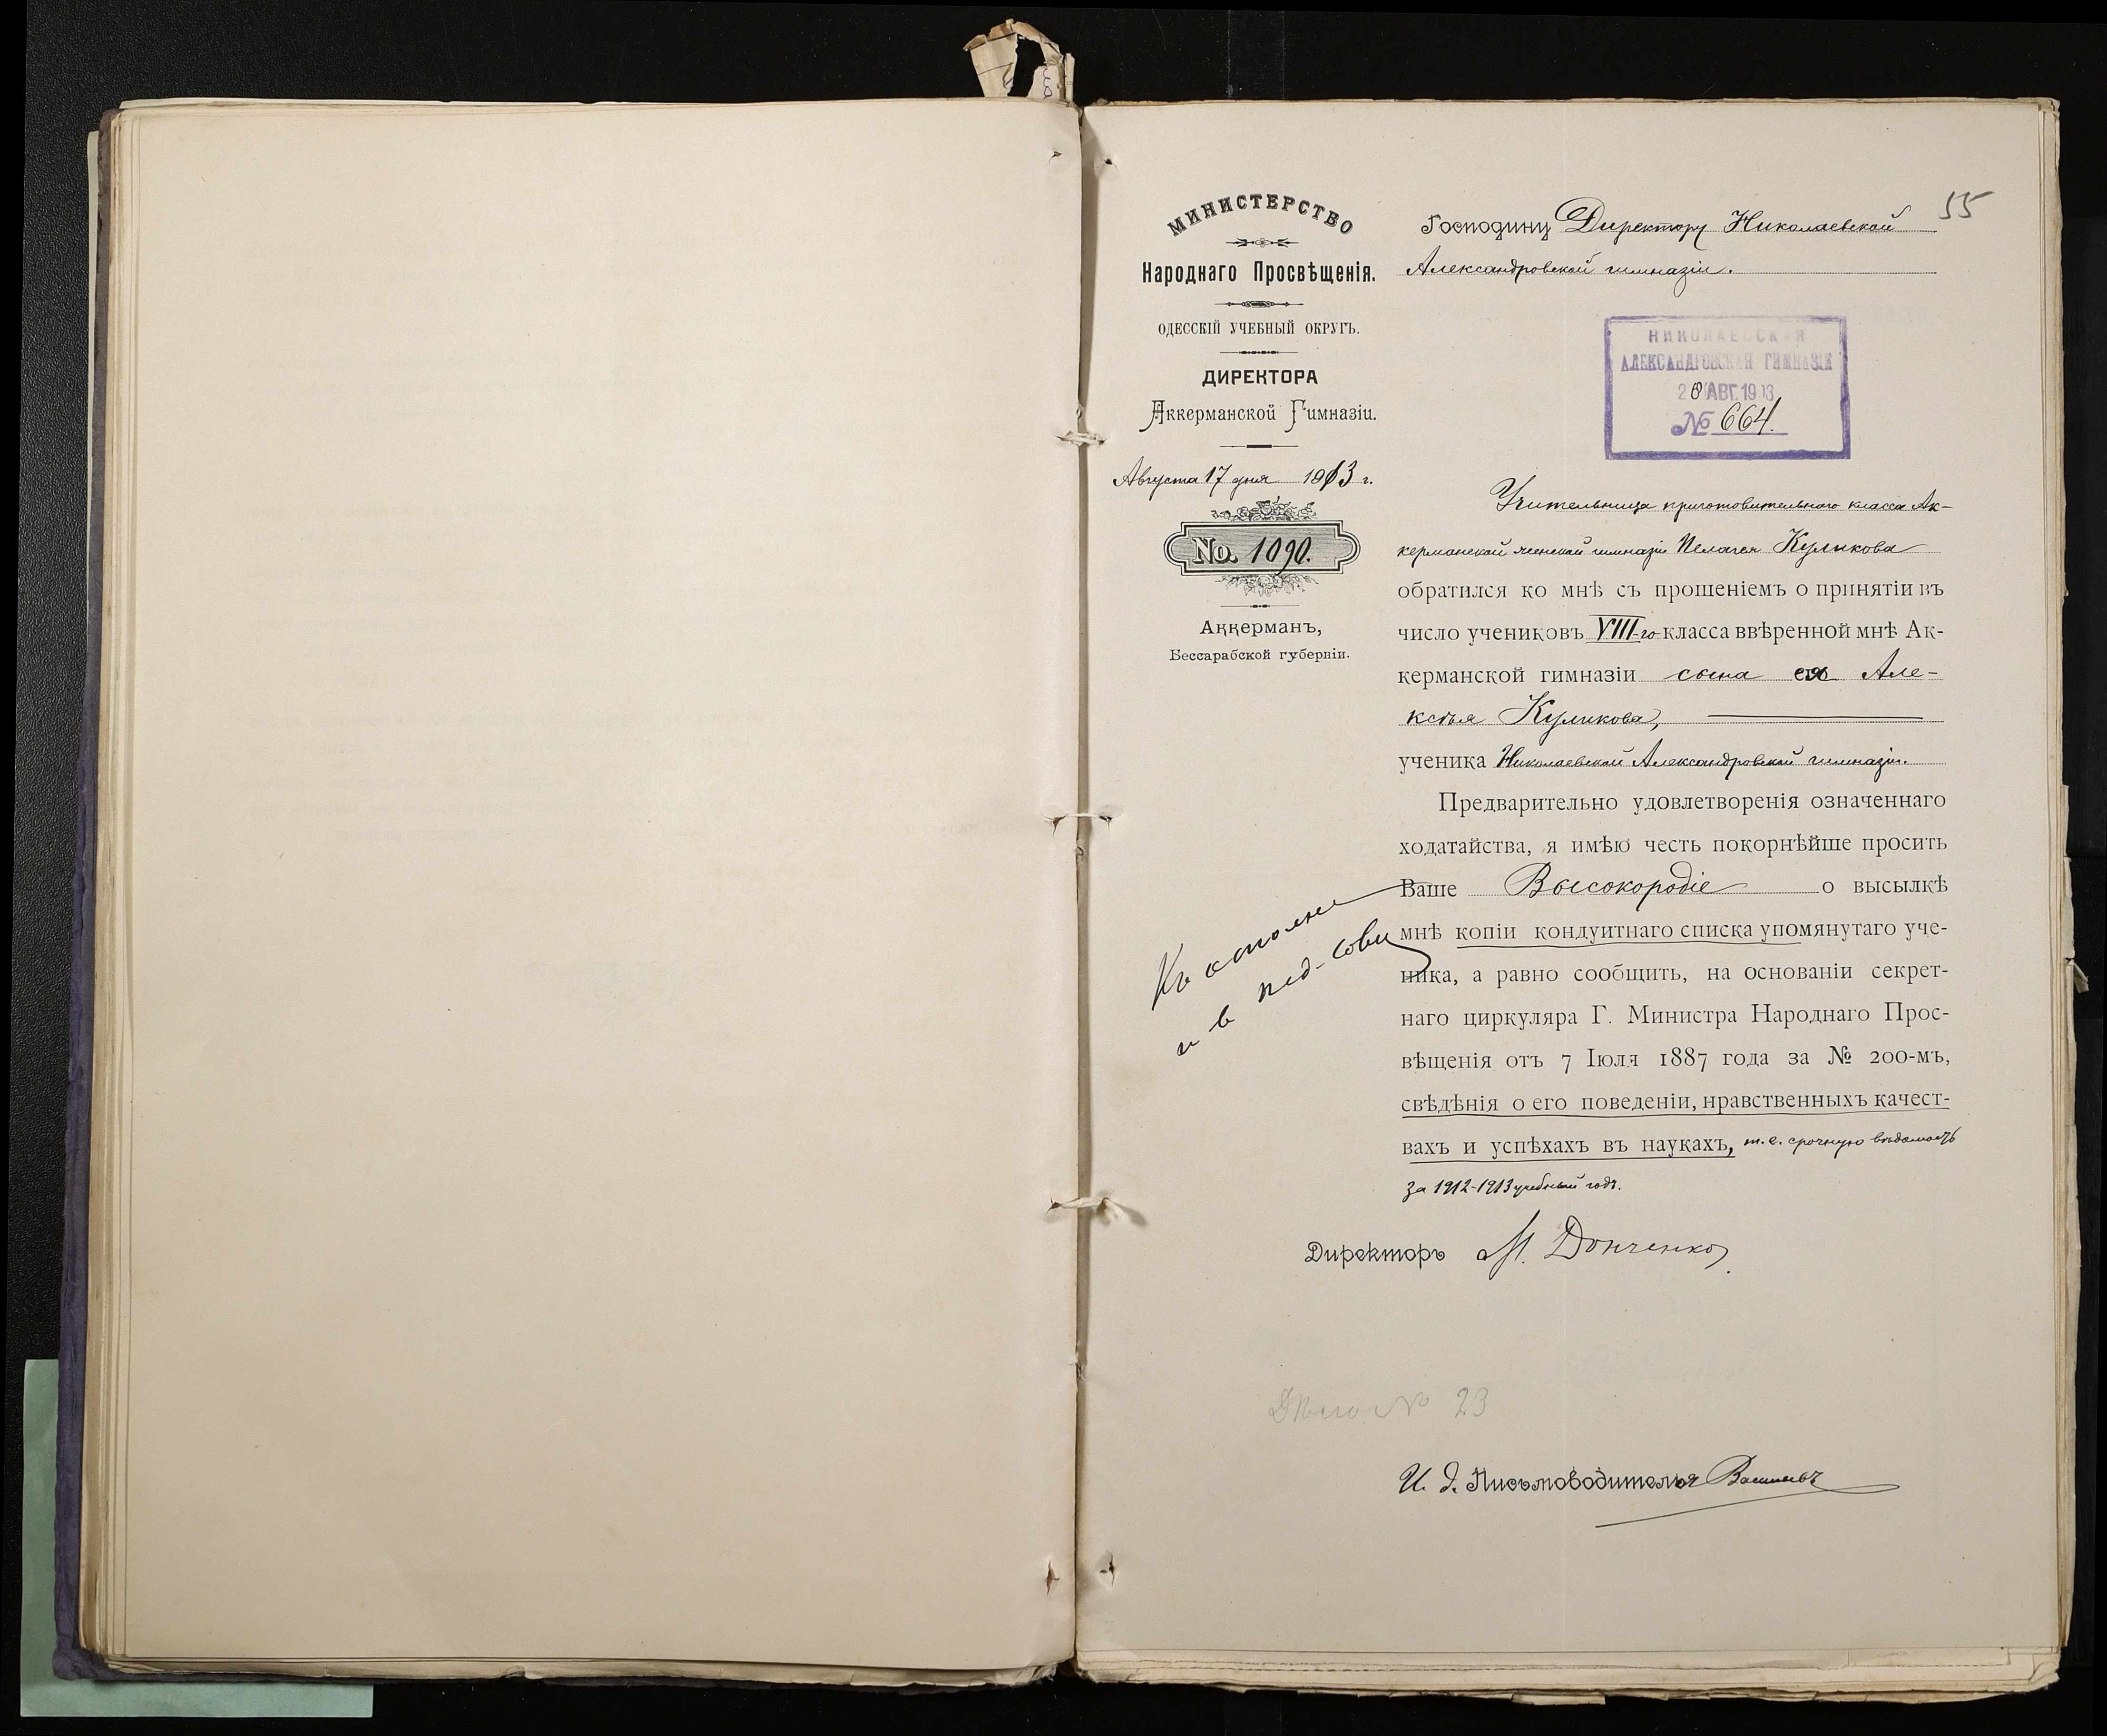 55
МИНИСТЕРСТВО
Народнаго Просвѣщенія.
ОДЕССКІЙ УЧЕБНЫЙ ОКРУГЪ.
ДИРЕКТОРА
Аккерманской Гимназіи.
Августа 17 дня 1913 г.
No. 1090.
Аккерманъ,
Бессарабской губерніи.
Господину Директору Николаевской
Александровской гимназіи.
НИКОЛАЕВСКАЯ
АЛЕКСАНДРОВСКАЯ ГИМНАЗІЯ
20 АВГ. 1913
№ 664.
Учительница приготовительнаго класса Ак-
керманской женской гимназіи Пелагея Куликова
обратился ко мнѣ съ прошеніемъ о принятіи въ
число учениковъ VIII-го класса ввѣренной мнѣ Ак-
керманской гимназіи сына ея Але-
ксѣя Куликова,
ученика Николаевской Александровской гимназіи.
Предварительно удовлетворенія означеннаго
ходатайства, я имѣю честь покорнѣйше просить
Ваше Высокородіе о высылкѣ
мнѣ копіи кондуитнаго списка упомянутаго уче-
ника, а равно сообщить, на основаніи секрет-
наго циркуляра Г. Министра Народнаго Прос-
вѣщенія отъ 7 Іюля 1887 года за № 200-мъ,
свѣдѣнія о его поведеніи, нравственныхъ качест-
вахъ и успѣхахъ въ наукахъ, т.е. срочную вѣдомость
за 1912-1913 учебный годъ.
Къ исполне
и в пед-сове
Директоръ М. Донченко
Дѣло № 23
И. д. Письмоводителя Васильевъ